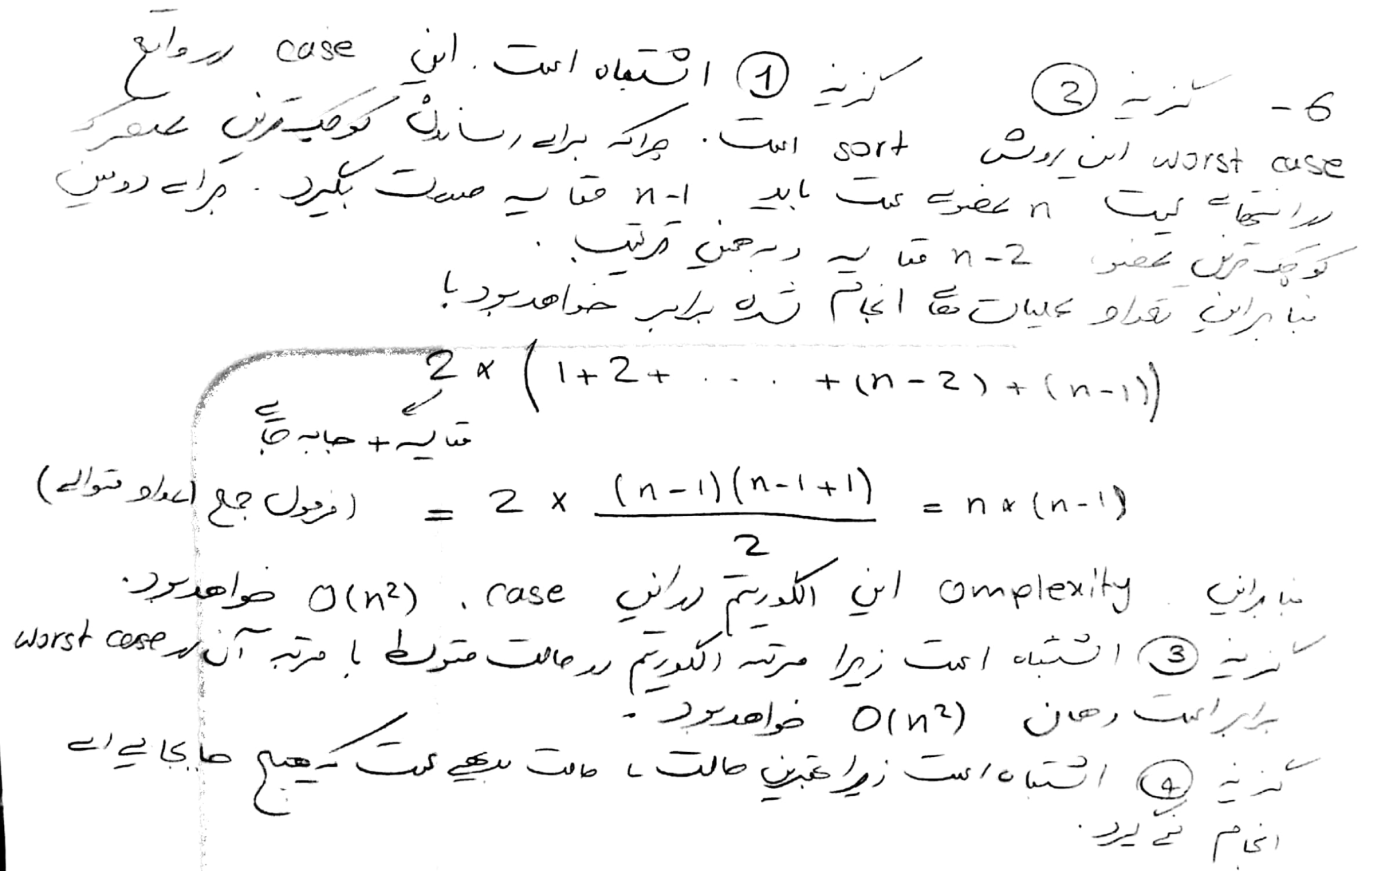 6- گزینه 2 گزینه 1 اشتباه است. این case در واقع
worst case این روش sort است. چرا که برای رساندن کوچک‌ترین عضو که
در انتهای لیست n عضوی است باید n-1 مقایسه صورت بگیرد. برای دومین
کوچک‌ترین عضو، n-2 مقایسه و به همین ترتیب.
بنابراین تعداد عملیات‌های انجام شده برابر خواهد بود با
2 × (1+2+ . . . . +(n-2)+(n-1))
مقایسه + جابه‌جایی
= 2 × (n-1)(n-1+1) / 2 = n×(n-1) (فرمول جمع اعداد متوالی)
بنابراین omplexity این الگوریتم در این case، O(n²) خواهد بود.
گزینه 3 اشتباه است زیرا مرتبه الگوریتم در حالت متوسط با مرتبه آن در worst case
برابر است و همان O(n²) خواهد بود.
گزینه 4 اشتباه است زیرا بهترین حالت، حالت بدیهی است که هیچ جابجایی‌ای
انجام نگیرد.